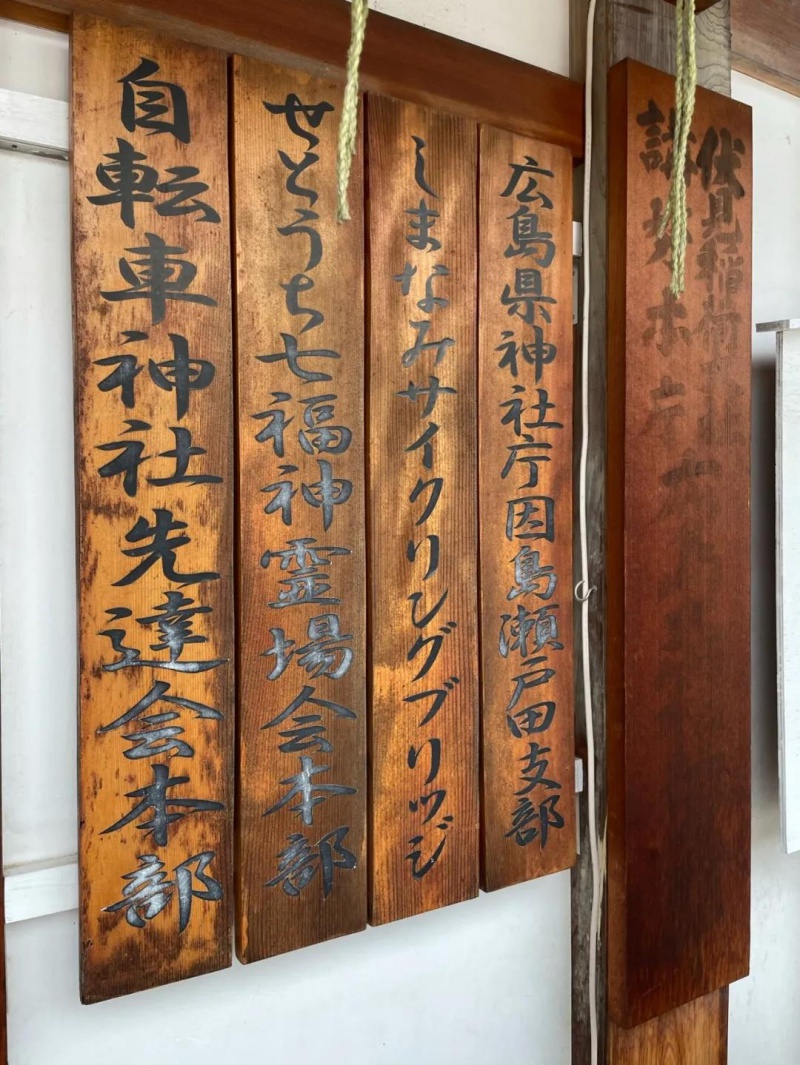 伏見稲荷
講
広島県神社庁因島瀬戸田支部
しまなみサイクリングブリッジ
せとうち七福神霊場会本部
自転車神社先達会本部